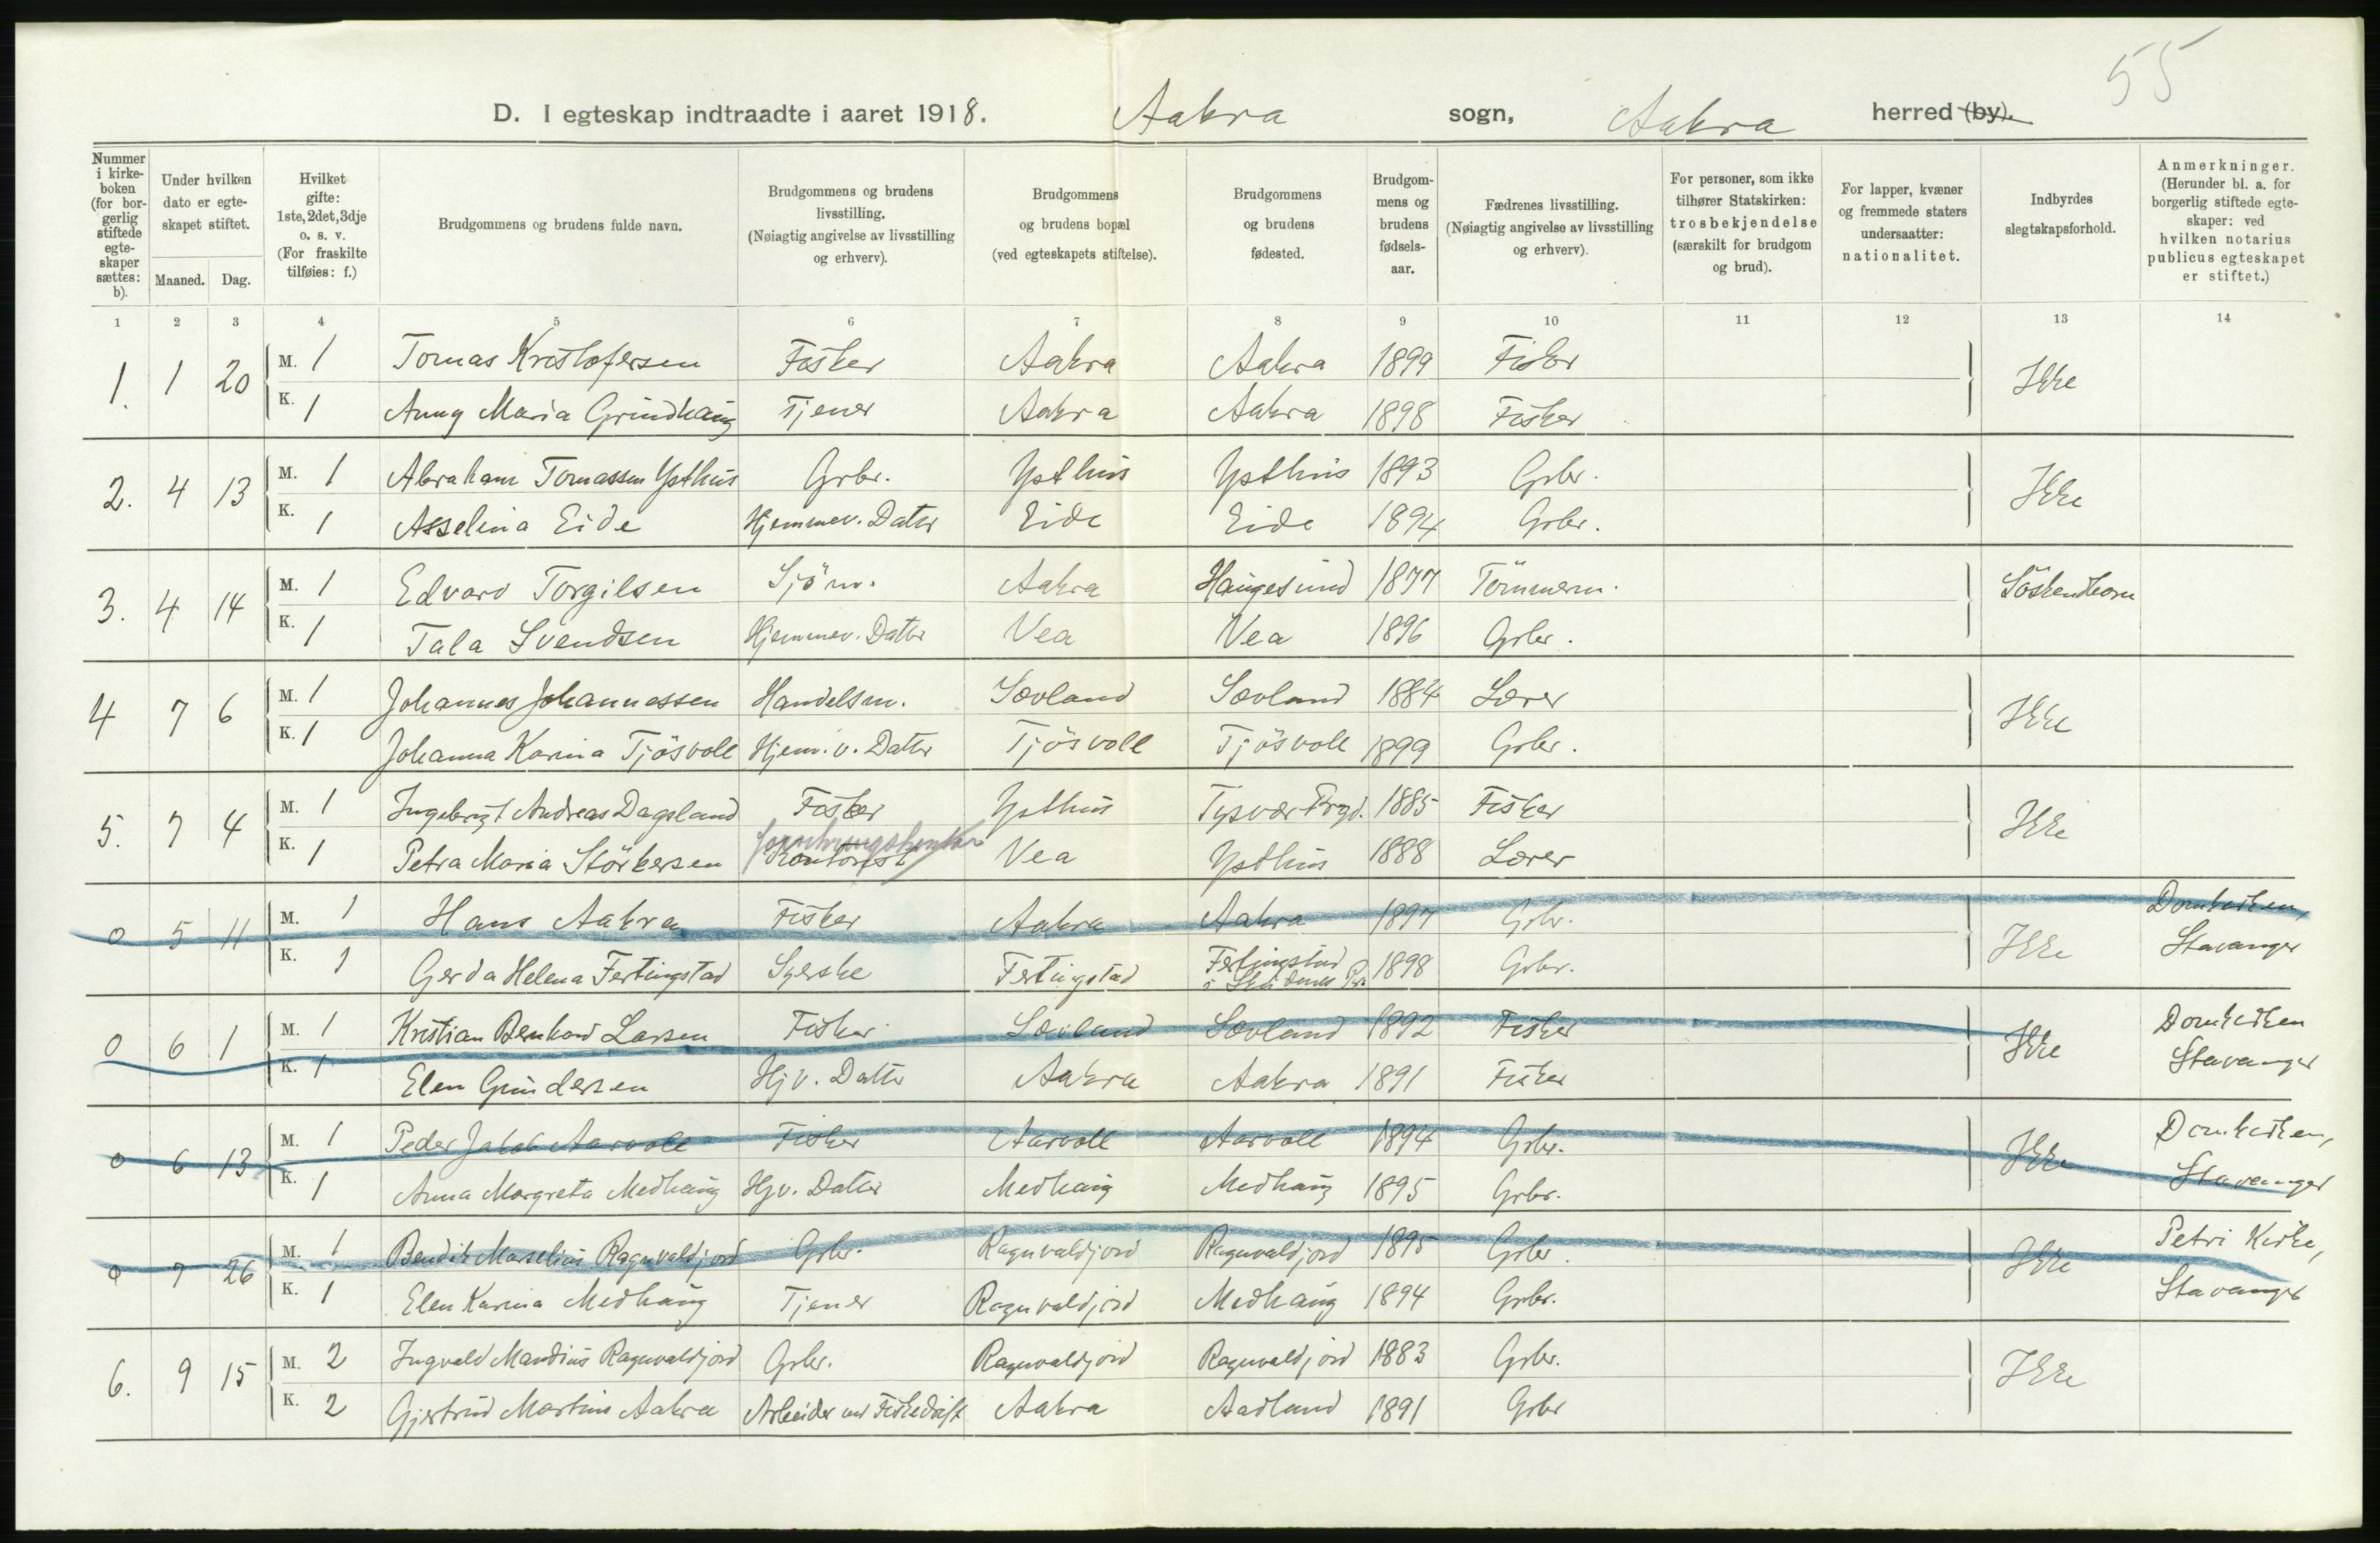 55
D. I egteskap indtraadte i aaret 1918. Aakra sogn, Aakra herred (by).
Nummer i kirkeboken (for borgerlig stiftede egteskaper sættes: b).
Under hvilken dato er egteskapet stiftet.
Maaned. Dag.
Hvilket gifte: 1ste, 2det, 3dje o. s. v. (For fraskilte tilføies: f.)
Brudgommens og brudens fulde navn.
Brudgommens og brudens livsstilling. (Nøiagtig angivelse av livsstilling og erhverv).
Brudgommens og brudens bopæl (ved egteskapets stiftelse).
Brudgommens og brudens fødested.
Brudgommens og brudens fødselsaar.
Fædrenes livsstilling. (Nøiagtig angivelse av livsstilling og erhverv).
For personer, som ikke tilhører Statskirken: trosbekjendelse (særskilt for brudgom og brud).
For lapper, kvæner og fremmede staters undersaatter: nationalitet.
Indbyrdes slegtskapsforhold.
Anmerkninger. (Herunder bl. a. for borgerlig stiftede egteskaper: ved hvilken notarius publicus egteskapet er stiftet.)
1 2 3 4 5 6 7 8 9 10 11 12 13 14
1. 1 20 M. 1 Tomas Kristofersen Fisker Aakra Aakra 1899 Fisker Ikke
K. 1 Anny Maria Grindhaug Tjener Aakra Aakra 1898 Fisker
2. 4 13 M. 1 Abraham Tomassen Ysthus Grbr. Ysthus Ysthus 1893 Grbr. Ikke
K. 1 Asselina Eide Hjemmev. Datter Eide Eide 1894 Grbr.
3. 4 14 M. 1 Edvard Torgilsen Sjöm. Aakra Haugesund 1877 Tömmerm. Söskendbarn
K. 1 Tala Svendsen Hjemmev. Datter Vea Vea 1896 Grbr.
4 7 6 M. 1 Johannes Johannessen Handelsm. Sævland Sævland 1884 Lærer Ikke
K. 1 Johanna Karina Tjösvoll Hjem. v. Datter Tjösvoll Tjösvoll 1899 Grbr.
5. 7 4 M. 1 Ingebrigt Andreas Dagsland Fisker Ysthus Tysvær Prgd. 1885 Fisker Ikke
K. 1 Petra Maria Störkersen Kontorist Vea Ysthus 1888 Lærer
0 5 11 M. 1 Hans Aakra Fisker Aakra Aakra 1897 Grbr. Ikke Domkirken,
K. 1 Gerda Helena Fertingstad Syerske Fertingstad Fertingstad 1898 Grbr. Stavanger
0 6 1 M. 1 Kristian Bernhard Larsen Fisker Sævland Sævland 1892 Fisker Ikke Domkirken
K. 1 Elen Gundersen Hj v. Datter Aakra Aakra 1891 Fisker Stavanger
0 6 13 M. 1 Peder Jakob Aarvoll Fisker Aarvoll Aarvoll 1894 Grbr. Ikke Domkirken,
K. 1 Anna Margreta Medhaug Hjv. Datter Medhaug Medhaug 1895 Grbr. Stavanger
0 7 26 M. 1 Bendik Marselius Ragnvaldjord Grbr. Ragnvaldjord Ragnvaldjord 1895 Grbr. Ikke Petri Kirke,
K. 1 Elen Karina Medhaug Tjener Ragnvaldjord Medhaug 1894 Grbr. Stavanger
6. 9 15 M. 2 Ingvald Mandius Ragnvaldjord Grbr. Ragnvaldjord Ragnvaldjord 1883 Grbr. Ikke
K. 2 Gjertrud Martine Aakra Arbeider ved Fiskedrift Aakra Aadland 1891 Grbr